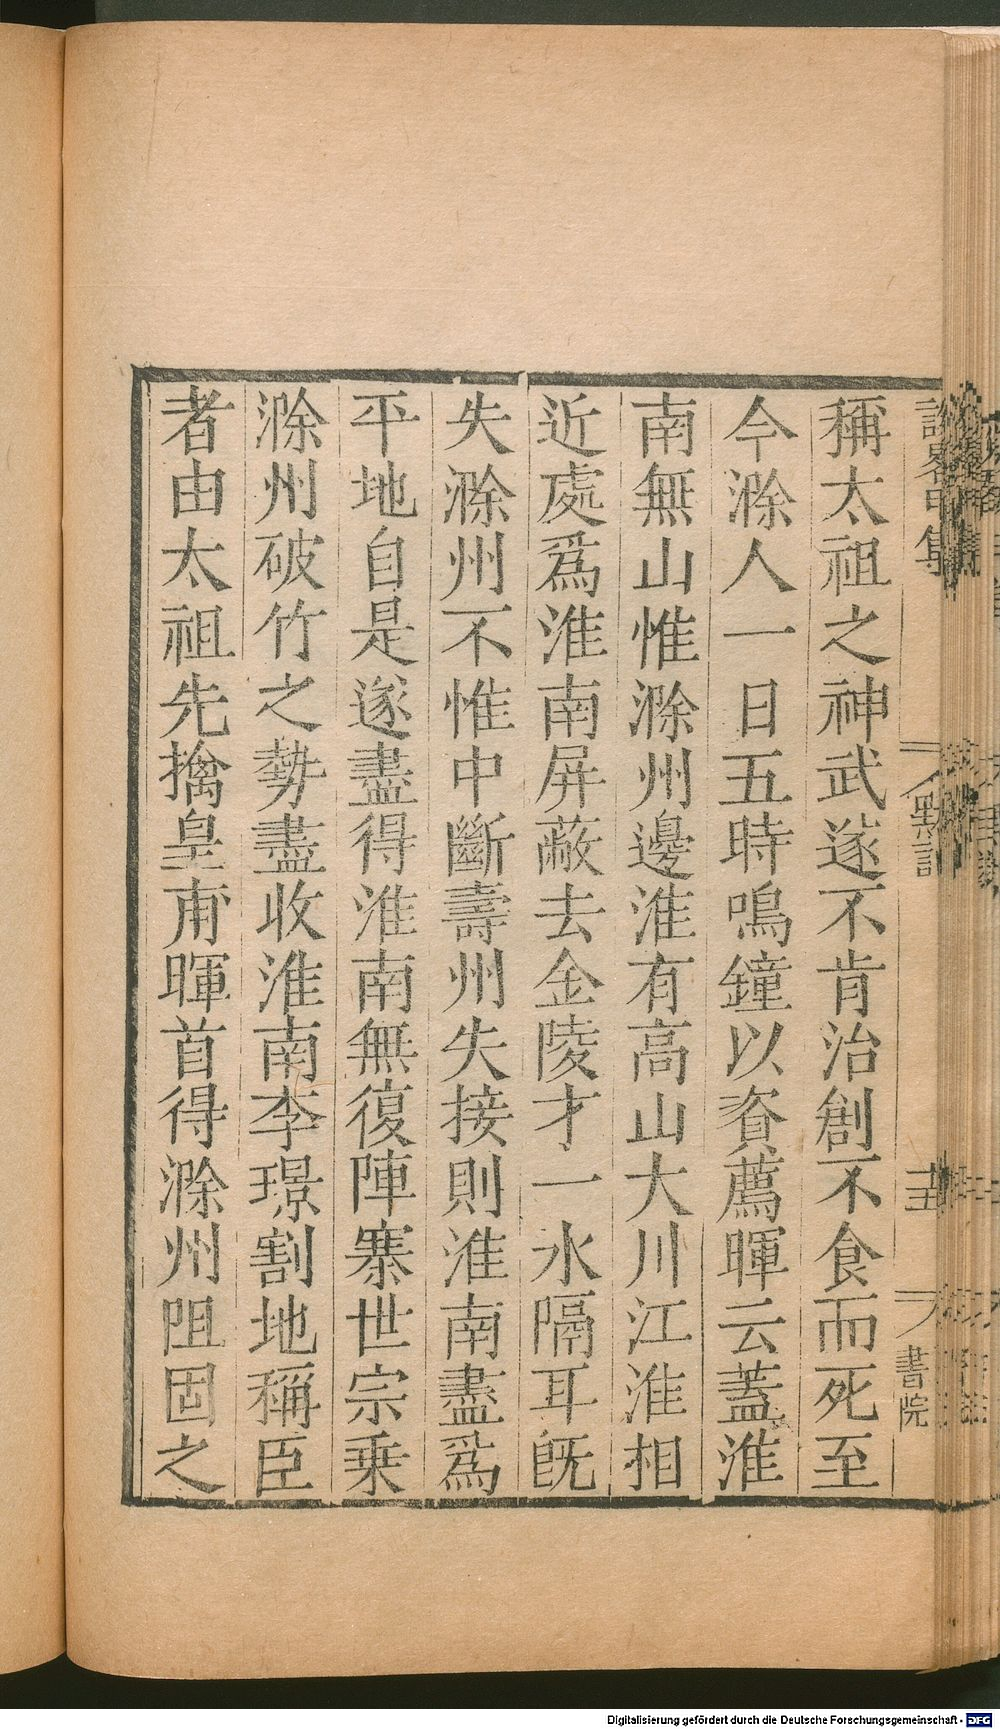 稱太祖之神武遂不肯治創不食而死至
今滁人一日五時鳴鐘以資薦暉云蓋淮
南無山惟滁州邊淮有高山大川江淮相
近處爲淮南屏蔽去金陵才一水隔耳旣
失滁州不惟中斷壽州失接則淮南盡爲
平地自是遂盡得淮南無復陣寨世宗乗
滁州破竹之勢盡收淮南李璟割地稱臣
者由太祖先擒皇甫暉首得滁州阻固之
書院
Digitalisierung gefördert durch die Deutsche Forschungsgemeinschaft - DFG